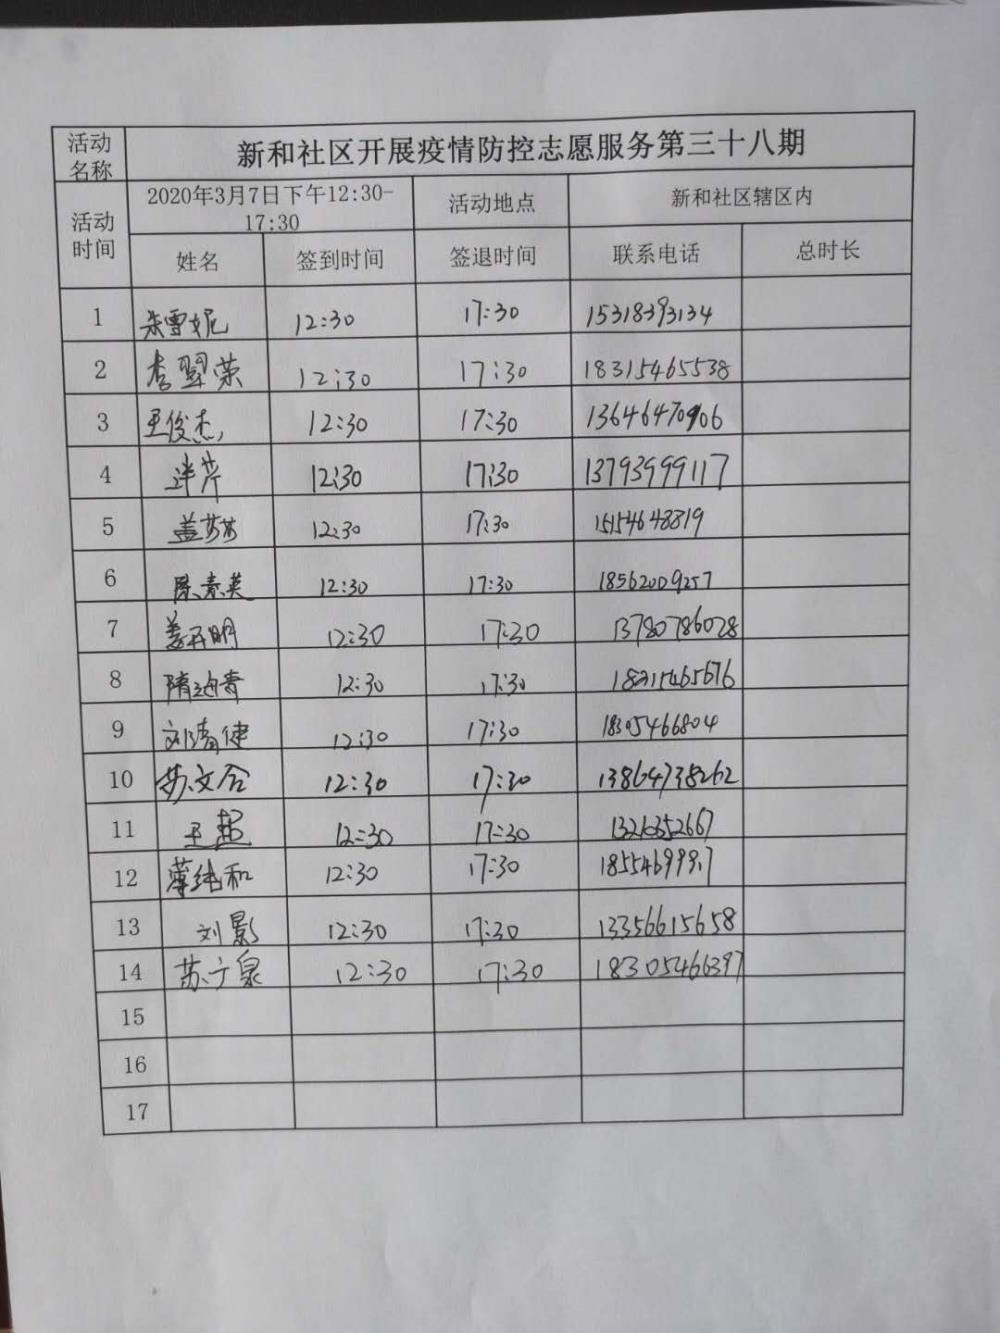 活动名称 新和社区开展疫情防控志愿服务第三十八期
活动时间 2020年3月7日下午12:30-17:30 活动地点 新和社区辖区内
姓名 签到时间 签退时间 联系电话 总时长
1 朱雪妮 12:30 17:30 15318393134
2 李翠荣 12:30 17:30 18315465538
3 王俊杰 12:30 17:30 13646470906
4 12:30 17:30 13793999117
5 盖芬芬 12:30 17:30 15154648819
6 陈素英 12:30 17:30 18562009257
7 姜开明 12:30 17:30 13780786028
8 隋迎春 12:30 17:30 18315465676
9 刘清健 12:30 17:30 18305466804
10 苏文合 12:30 17:30 13864738262
11 王超 12:30 17:30
12 薄纯和 12:30 17:30
13 刘影 12:30 17:30 13356615658
14 苏广泉 12:30 17:30 18305466397
15
16
17